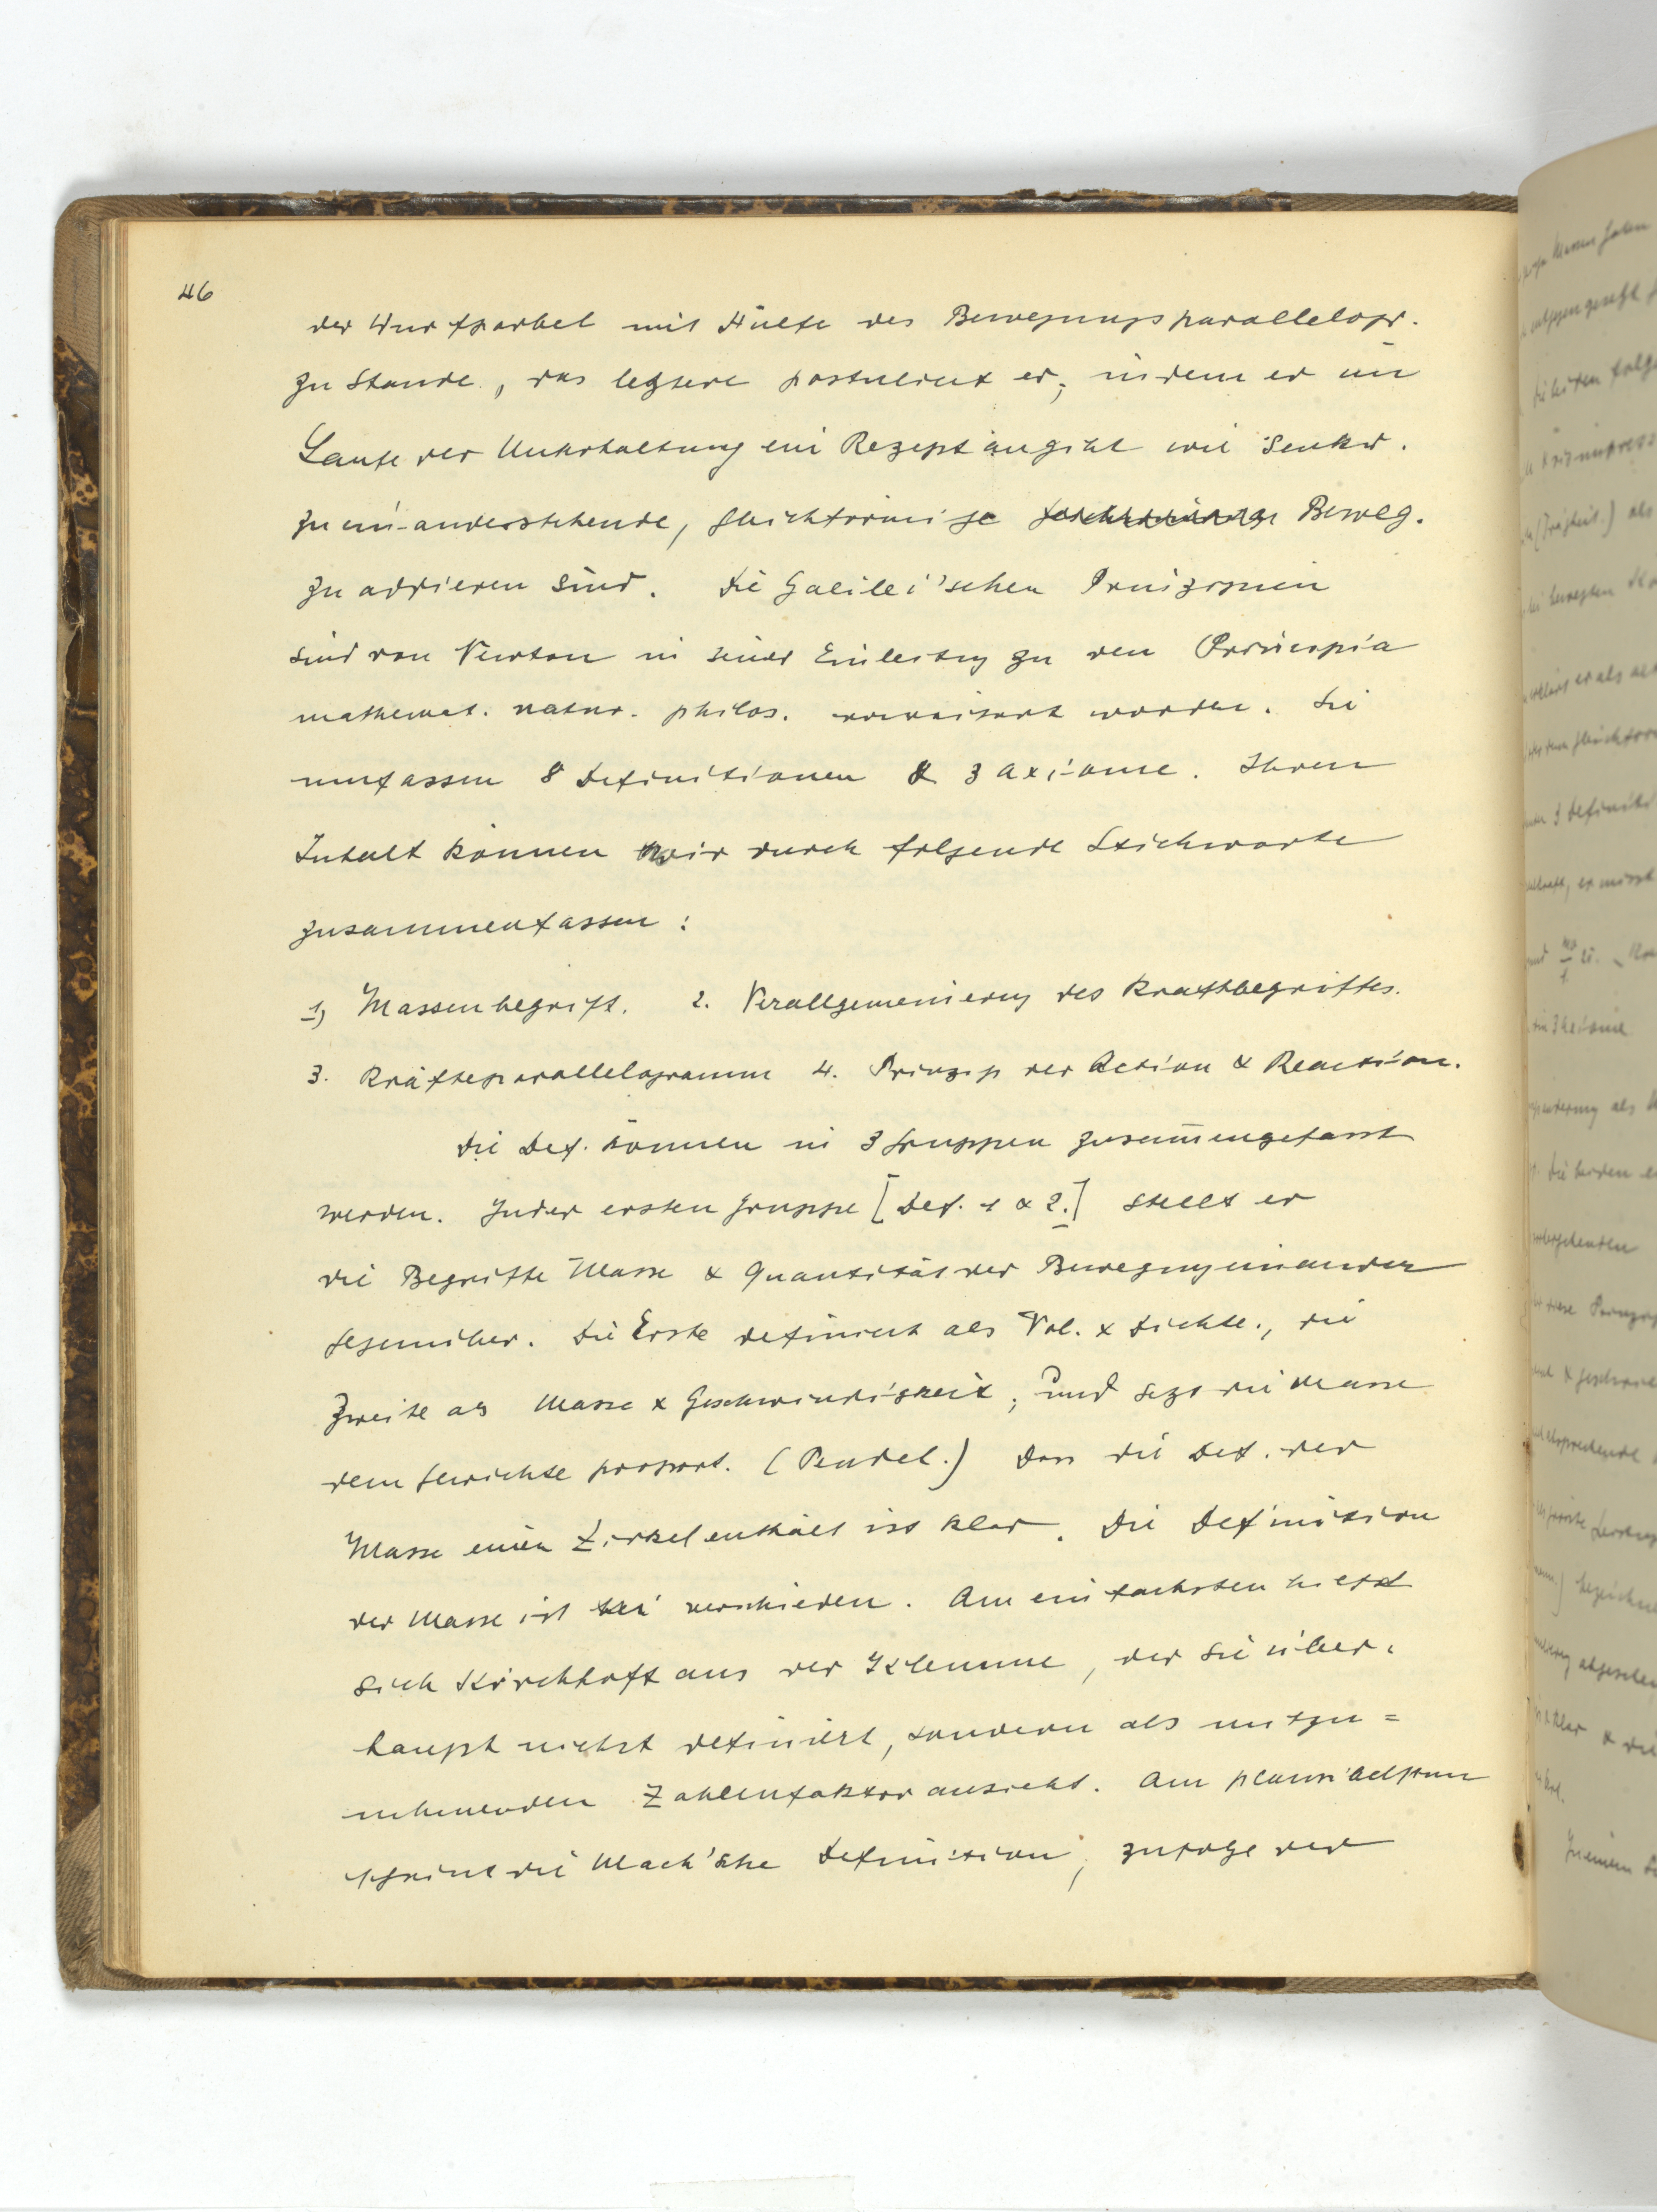 46
der Wurfparbel mit Hülfe des Bewegungsparallelogr.
zu Stande, das letztere postuliert er, indem er im
Laufe der Unterhaltung ein Rezept angibt wie senkr.
zu ein-anderstehende, gleichförmige Beweg.
zu addieren sind. Die Galilei'schen Prinzipien
sind von Newton in seiner Einleitung zu den Principia
mathemat. natur. philos. erweitert worden. Sie
umfassen 8 Definitionen & 3 Axiome. Ihren
Inhalt können wir durch folgende Stichworte
zusammenfassen:
1) Massenbegriff. 2. Verallgemeinierung des Kraftbegriffes.
3. Kräfteparallelogramm 4. Prinzip der Action & Reaction.
Die Def. können in 3 Gruppen zusam̅engefasst
werden. In der ersten Gruppe [Def. 1 & 2.] stellt er
die Begriffe Masse & Quantität der Bewegung einander
gegenüber. Die Erste definiert als Vol. x Dichte., die
Zweite als Masse x Geschwindigkeit, und setzt die Masse
dem Gewichte proport. (Pendel.) Dass die Def. der
Masse einen Zirkel enthält ist klar. Die Definition
der Masse ist verschieden. Am einfachsten hielft
sich Kirchhoff aus der Klemme, der sie über-
haupt nicht definiert, sondern als mitzu=
nehmenden Zahlenfaktor ansieht. Am plausibelsten
scheint die Mach'sche Definition, zufolge der